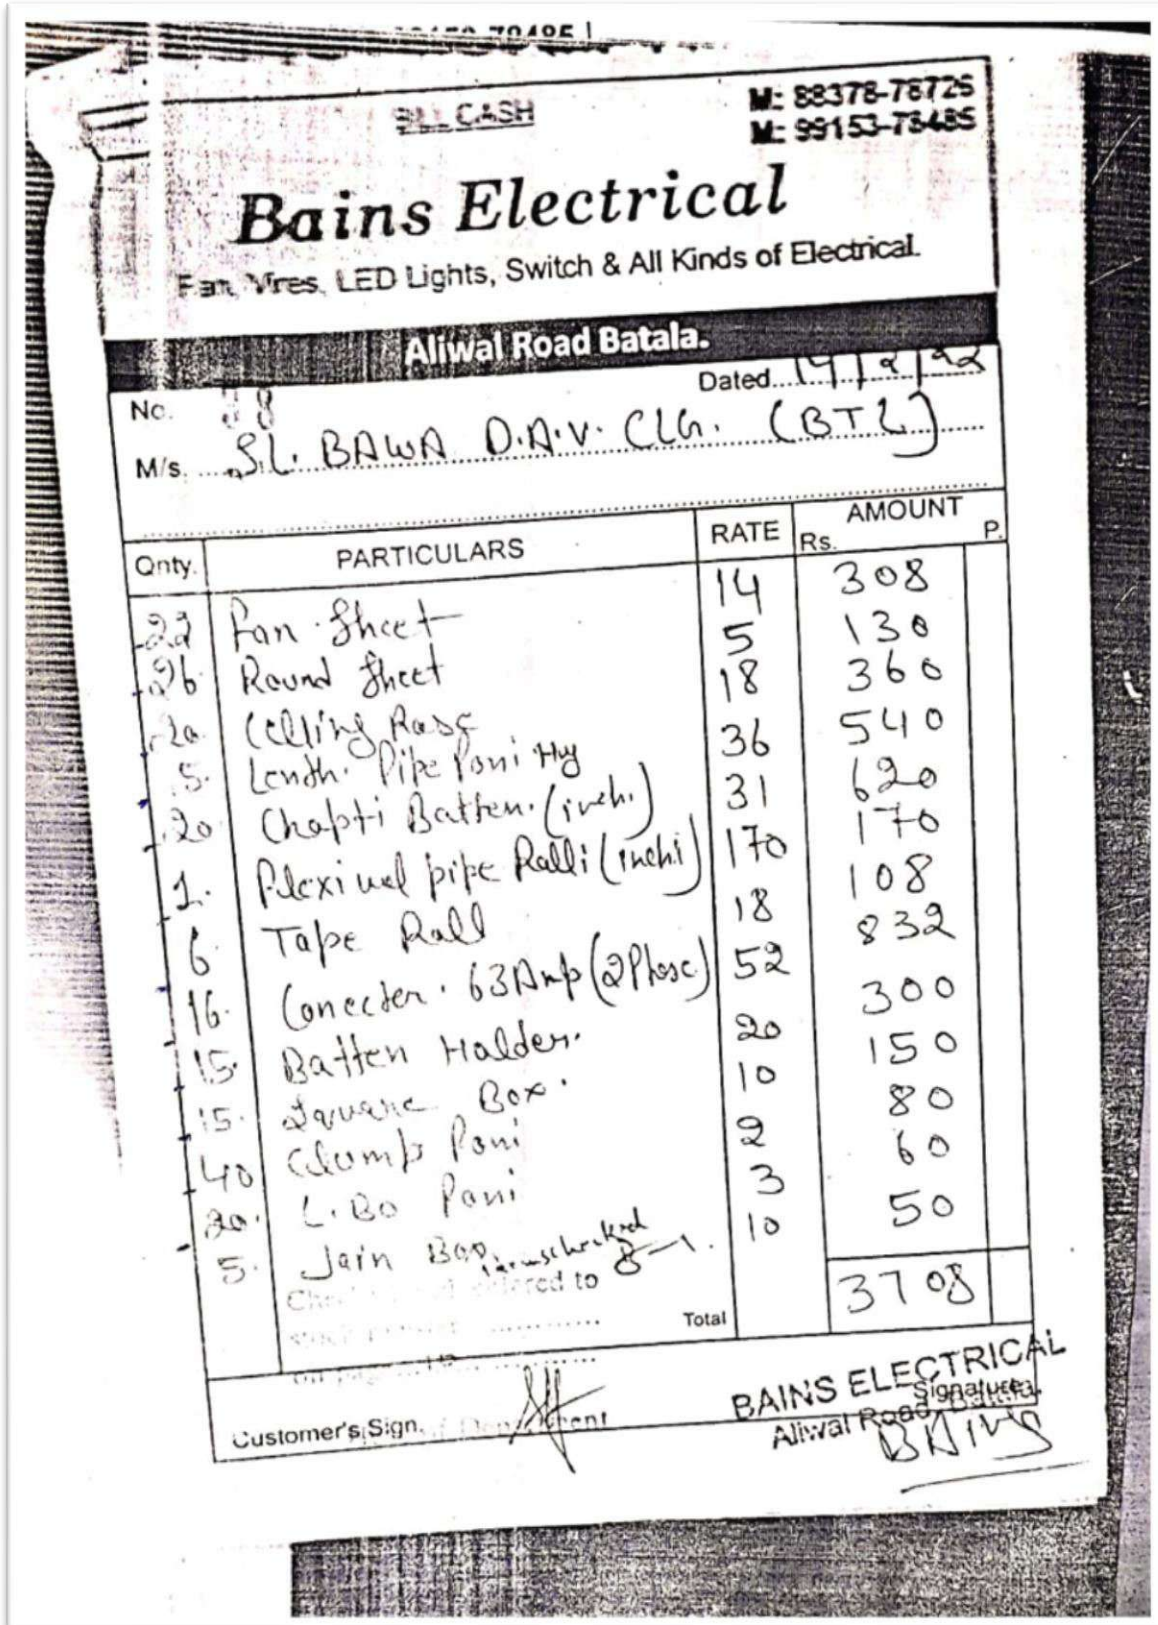 BILL CASH
M: 88378-78725
M: 99153-78485
Bains Electrical
Fan, Wires, LED Lights, Switch & All Kinds of Electrical.
Aliwal Road Batala.
No. 38 Dated....14/2/22
M/s. S.L. BAWA D.A.V. CLG. (BTL)
Qnty. PARTICULARS RATE AMOUNT
Rs. P.
22 Fan Sheet 14 308
26 Round Sheet 5 130
20 Celling Rose 18 360
5. Lenth. Pipe Poni Hy 36 540
20 Chapti Batten. (inchi) 31 620
1. Flexiwel pipe Ralli (inchi) 170 170
6 Tape Rall 18 108
16. Conecter. 63Amp (2 Phase) 52 832
15. Batten Halder. 20 300
15. Square Box. 10 150
40 Clump Poni 2 80
20. L.Bo Poni 3 60
5. Jain Box 10 50
Total 3708
BAINS ELECTRICAL
Signature
Customer's Sign. Aliwal Road, Batala
BAINS